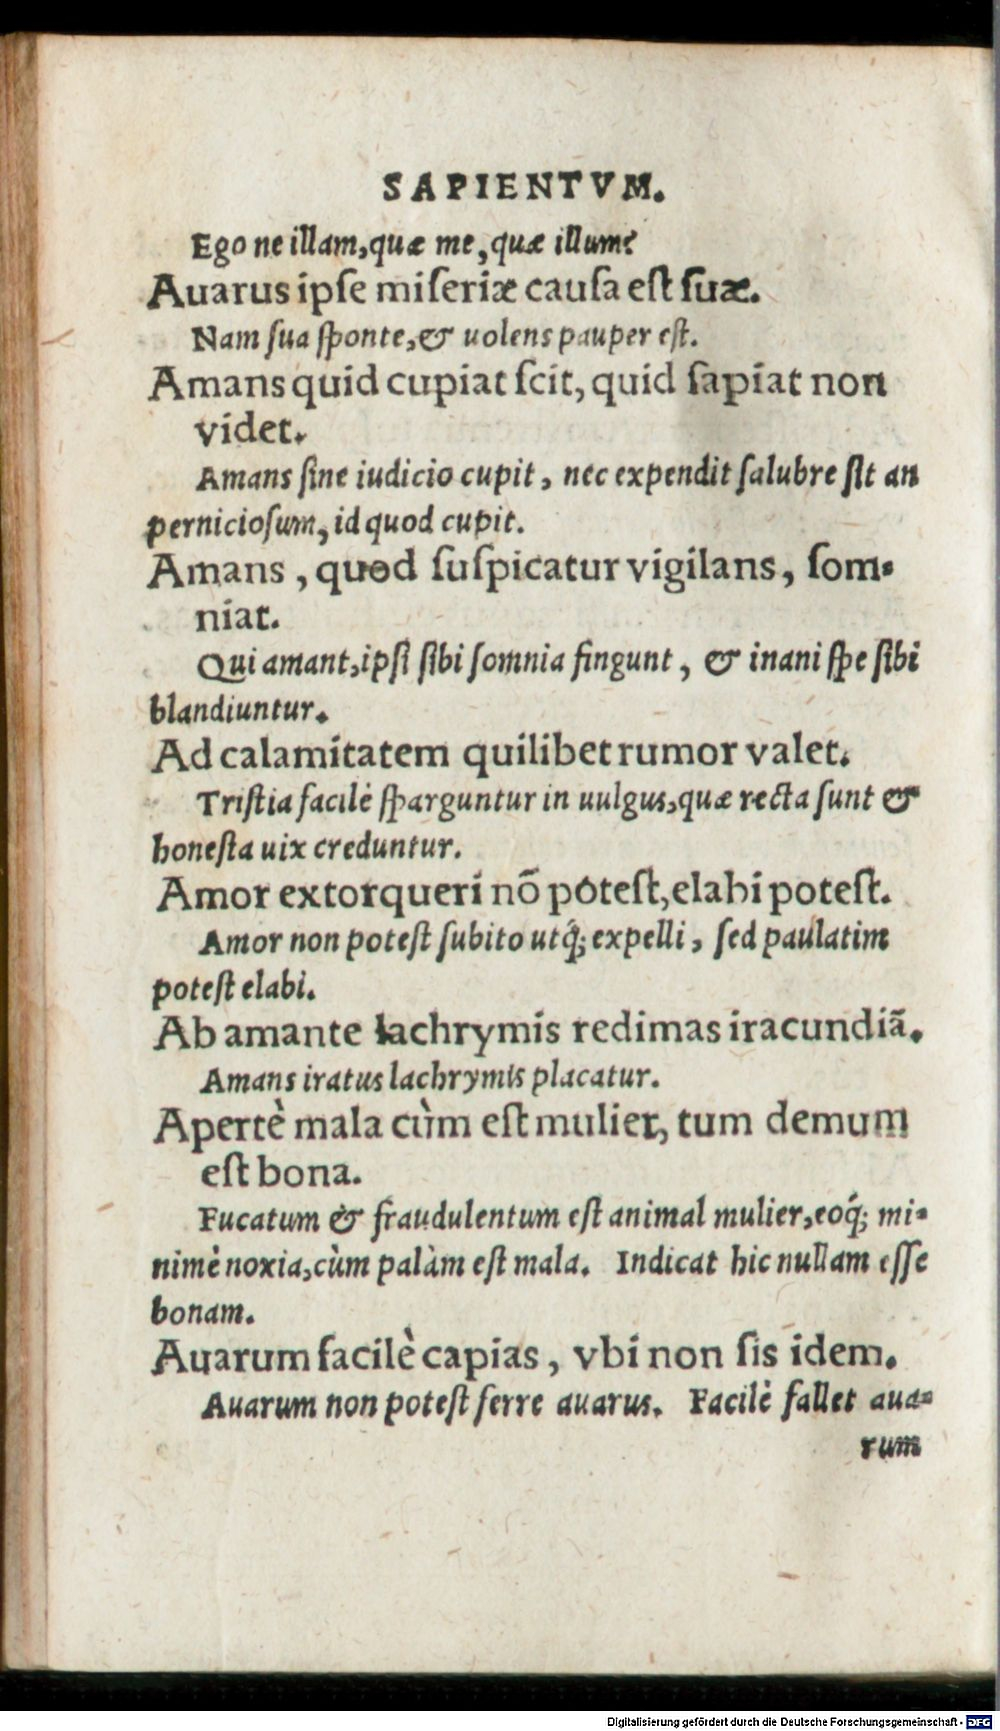 SAPIENTVM.
Ego ne illam, quæ me, quæ illum?
Auarus ipſe miſeriæ cauſa eſt ſuæ.
Nam ſua ſponte, & uolens pauper eſt.
Amans quid cupiat ſcit, quid ſapiat non
videt.
Amans ſine iudicio cupit, nec expendit ſalubre ſit an
pernicioſum, id quod cupit.
Amans, quod ſuſpicatur vigilans, ſom-
niat.
Qui amant, ipſi ſibi ſomnia fingunt, & inani ſpe ſibi
blandiuntur.
Ad calamitatem quilibet rumor valet.
Triſtia facilè ſparguntur in uulgus, quæ recta ſunt &
honeſta uix creduntur.
Amor extorqueri nõ poteſt, elabi poteſt.
Amor non poteſt ſubito utq́; expelli, ſed paulatim
poteſt elabi.
Ab amante lachrymis redimas iracundiã.
Amans iratus lachrymis placatur.
Apertè mala cùm eſt mulier, tum demum
eſt bona.
Fucatum & fraudulentum eſt animal mulier, eoq́; mi-
nimè noxia, cùm palàm eſt mala. Indicat hic nullam eſſe
bonam.
Auarum facilè capias, vbi non ſis idem.
Auarum non poteſt ferre auarus. Facilè fallet aua-
rum
Digitalisierung gefördert durch die Deutsche Forschungsgemeinschaft - DFG